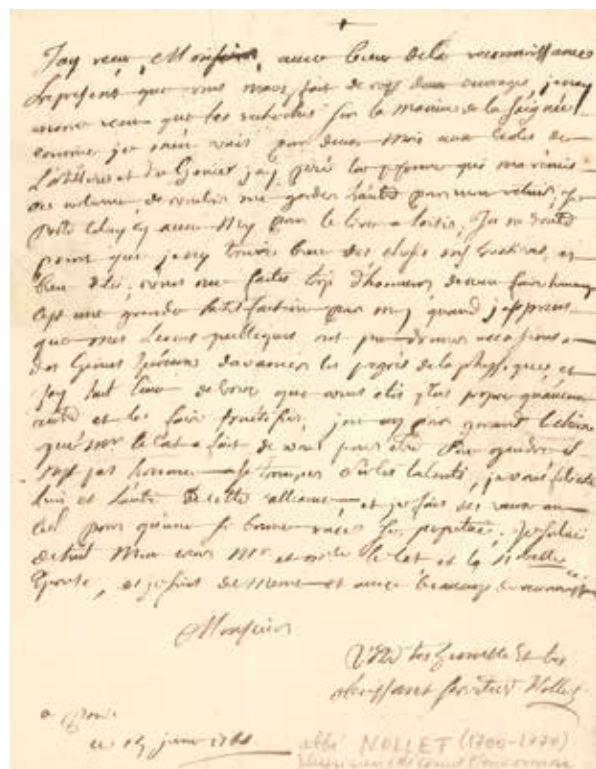 J'ay reçu, Monsieur, avec bien de la reconnaissance
le present que vous m'avez fait de vos deux ouvrages, je n'ay
encore reçu que les recherches sur la maniere de la Saignée
comme je m'en vais pour deux mois aux écoles de
L'artillerie et du Genie, j'ay prié la personne qui
ce volume de vouloir me garder l'autre pour mon retour, je
porte celuy cy avec moy pour le lire a loisir; Je ne doute
point que je n'y trouve bien des choses
bien ; vous me faites trop d'honneur de m'en faire hommage
c'est une grande satisfaction pour moy quand j'apprens
que mes Leçons publiques ont pu donner occasion a
des Genies heureux d'avancer les progrès de la physique, et
j'ay tout lieu de croire que vous êtes plus propre qu'aucun
autre et les faire fructifier, j'en ay pour garant le choix
que Mr le Cat a fait de vous pour être son gendre il
n'est pas homme a se tromper sur les talents, je vous félicite
luy et l'autre de cette alliance, et je fais des vœux au
Ciel pour qu'une si bonne race se perpetue. Je salue
de tout mon cœur Mr et Mde le Cat et la nouvelle
Epouse, et je suis de même et avec beaucoup de reconnaissance
Monsieur
Votre tres humble Et tres
obeissant serviteur Nollet
a Paris
ce 15 juin
abbé NOLLET (1700-1770)